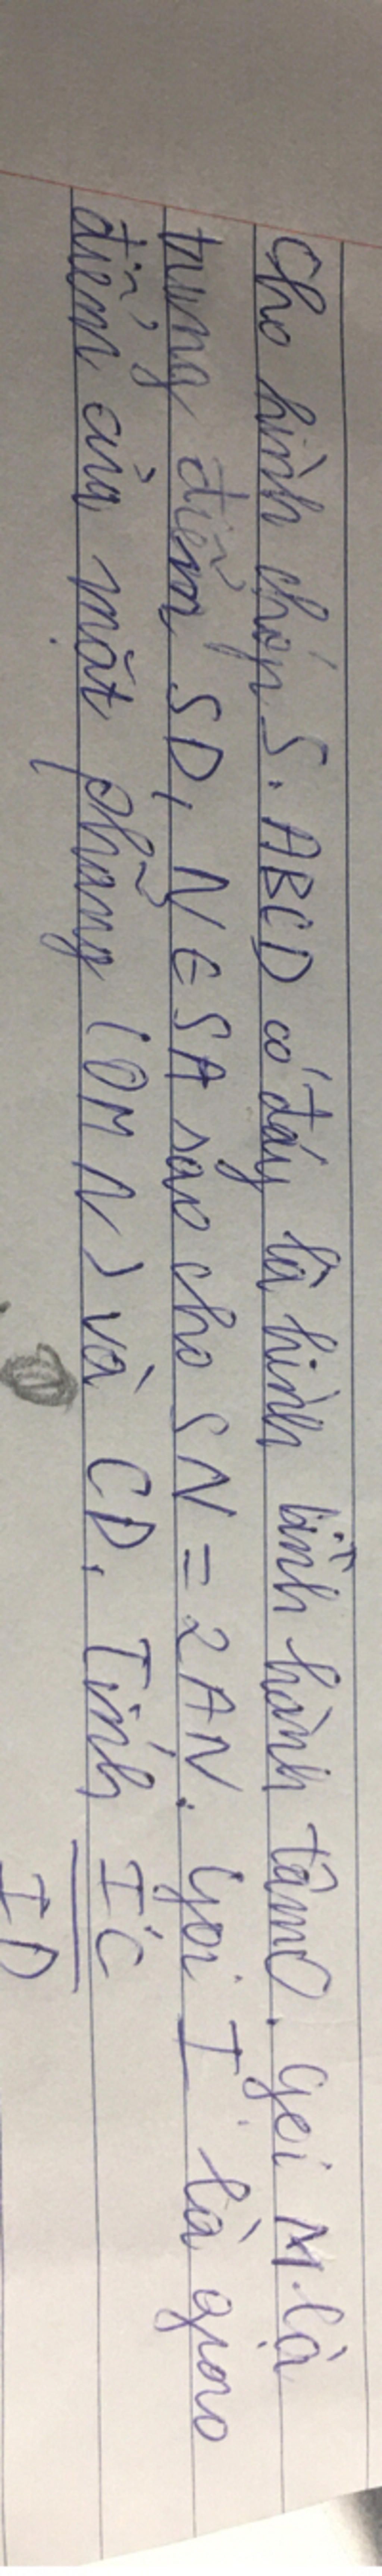 Cho hình chóp S.ABCD có đáy là hình bình hành tâm O. Gọi M là
trung điểm SD, N ∈ SA sao cho SN = 2AN. Gọi I là giao
điểm của mặt phẳng (OMN) và CD. Tính IC
ID